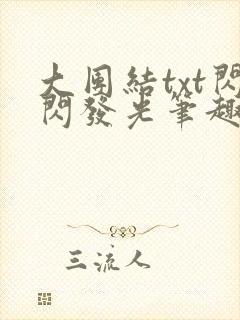 大团結txt閃
閃發光筆趣
三流人